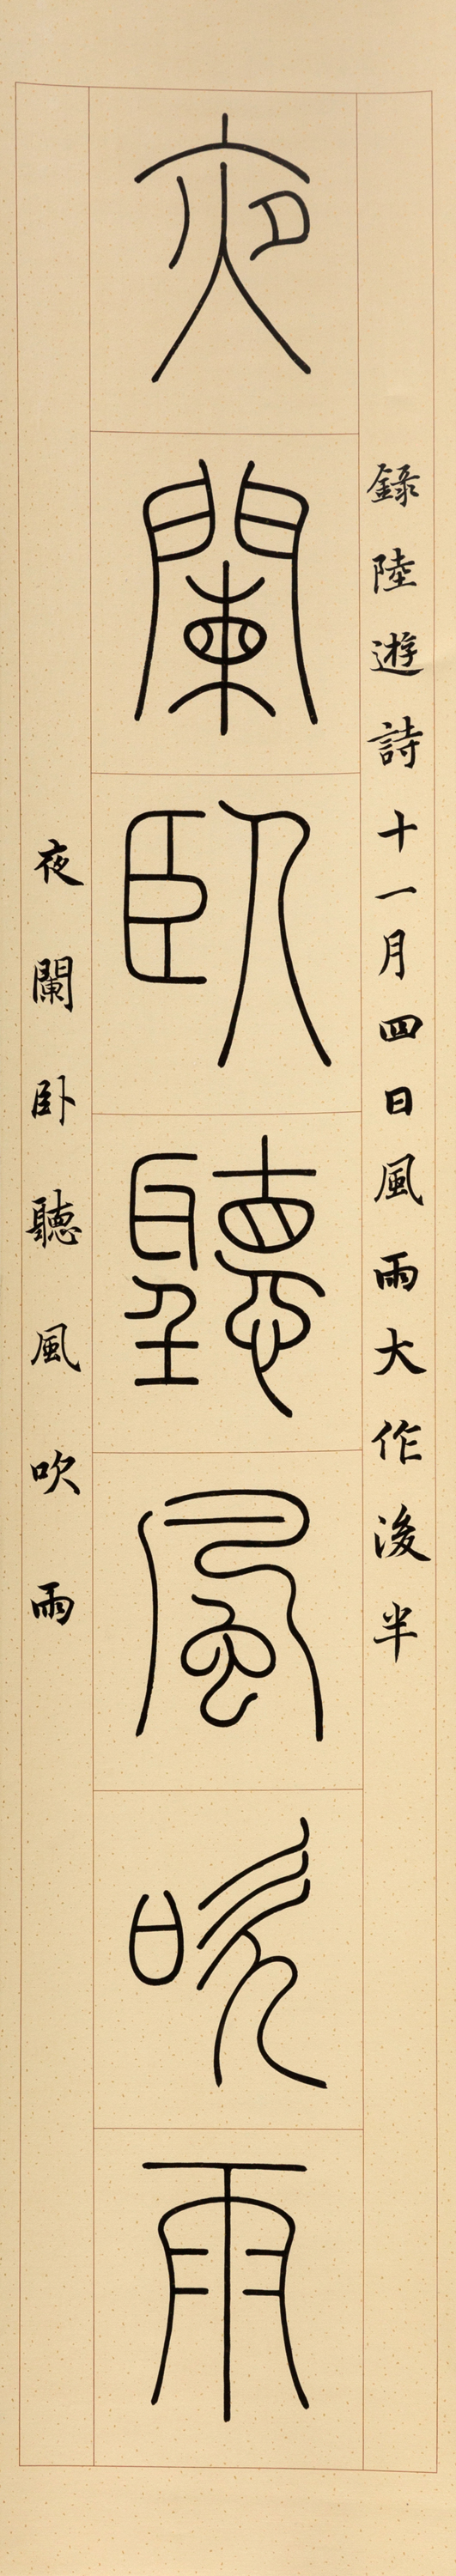 錄陸遊詩十一月四日風雨大作後半
夜闌臥聽風吹雨
夜闌卧聽風吹雨